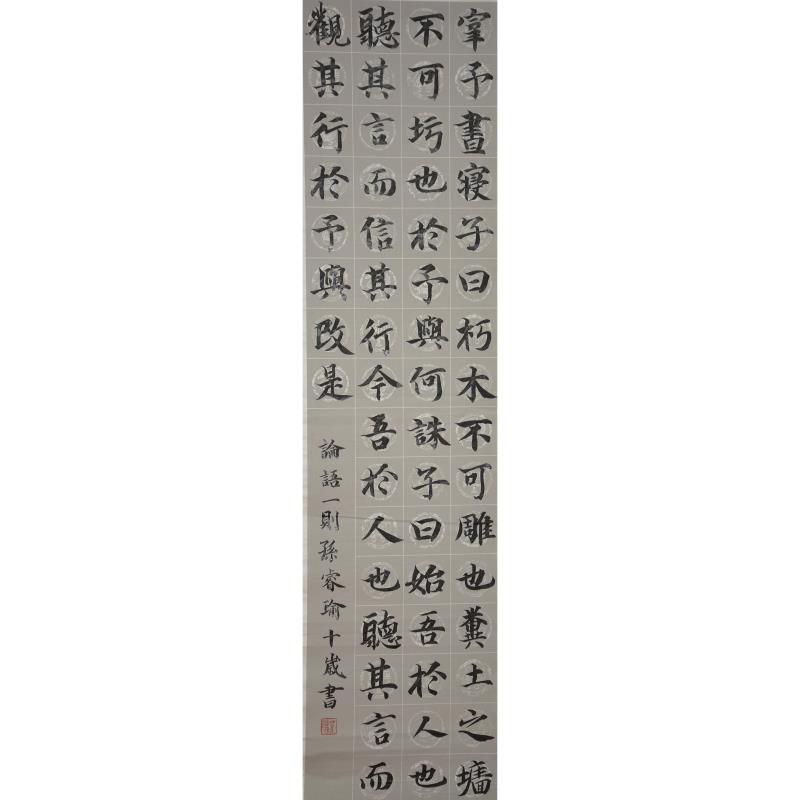 宰予晝寝子曰朽木不可雕也糞土之墻
不可圬也於予與何誅子曰始吾於人也
聽其言而信其行今吾於人也聽其言而
觀其行於予與改是
論語一則孫睿瑜十歲書